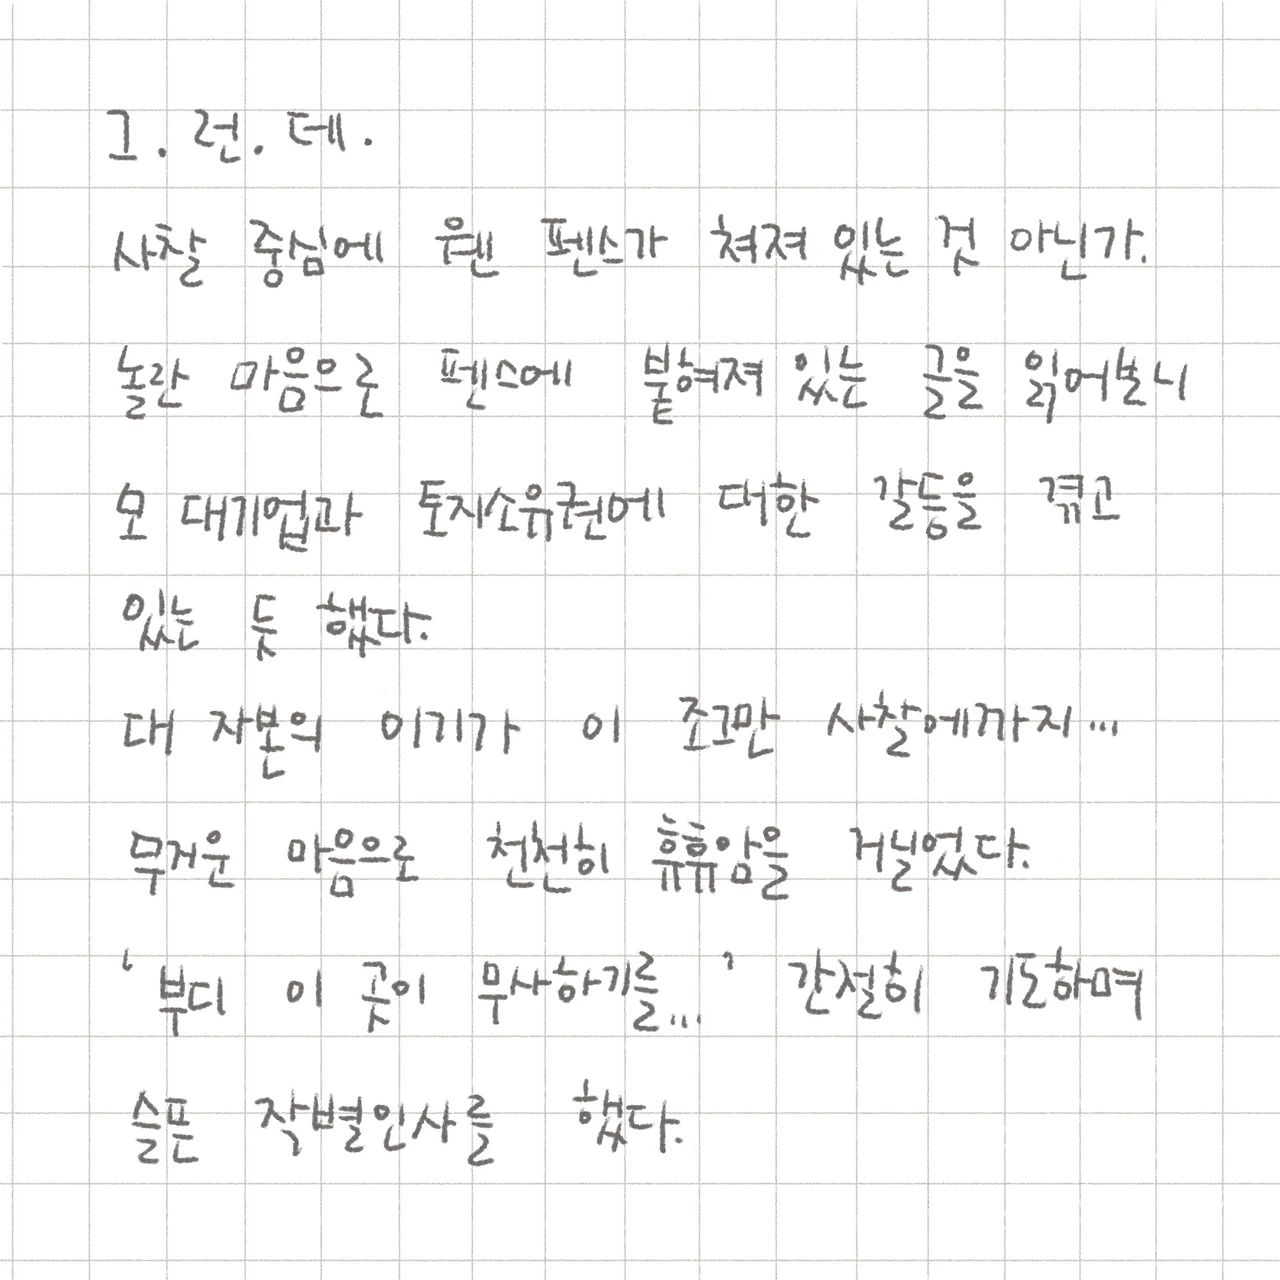 그.런.데.
사찰 중심에 웬 펜스가 쳐져 있는 것 아닌가.
놀란 마음으로 펜스에 붙혀져 있는 글을 읽어보니
모 대기업과 토지소유권에 대한 갈등을 겪고
있는 듯 했다.
대 자본의 이기가 이 조그만 사찰에까지...
무거운 마음으로 천천히 휴휴암을 거닐었다.
'부디 이 곳이 무사하기를...' 간절히 기도하며
슬픈 작별인사를 했다.